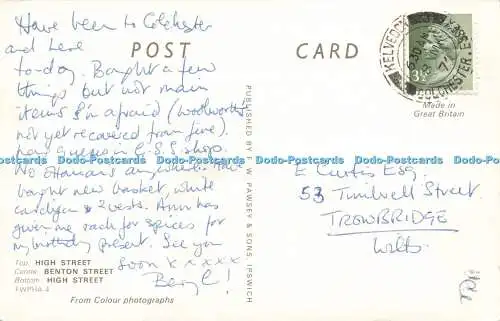 Have been to Colchester
and here
to-day. Bought a few
things but not main
items I'm afraid (Woolworths
not yet recovered from fire).
huge queues in C.S.S. shop.
No Ottomans anywhere. Have
bought new basket, white
cardigan & 2 vests. Ann has
given me rack for spices for
my birthday present. See you
soon x x x x x
Beryl!
POST CARD
KELVEDON
COLCHESTER ESSEX
3½
Made in
Great Britain
E Curtis Esq.
53 Timbrell Street
TROWBRIDGE
Wilts
PUBLISHED BY F. W. PAWSEY & SONS, IPSWICH
Top: HIGH STREET
Centre: BENTON STREET
Bottom: HIGH STREET
From Colour photographs
Dodo-Postcards Dodo-Postcards Dodo-Postcards Dodo-Postcards